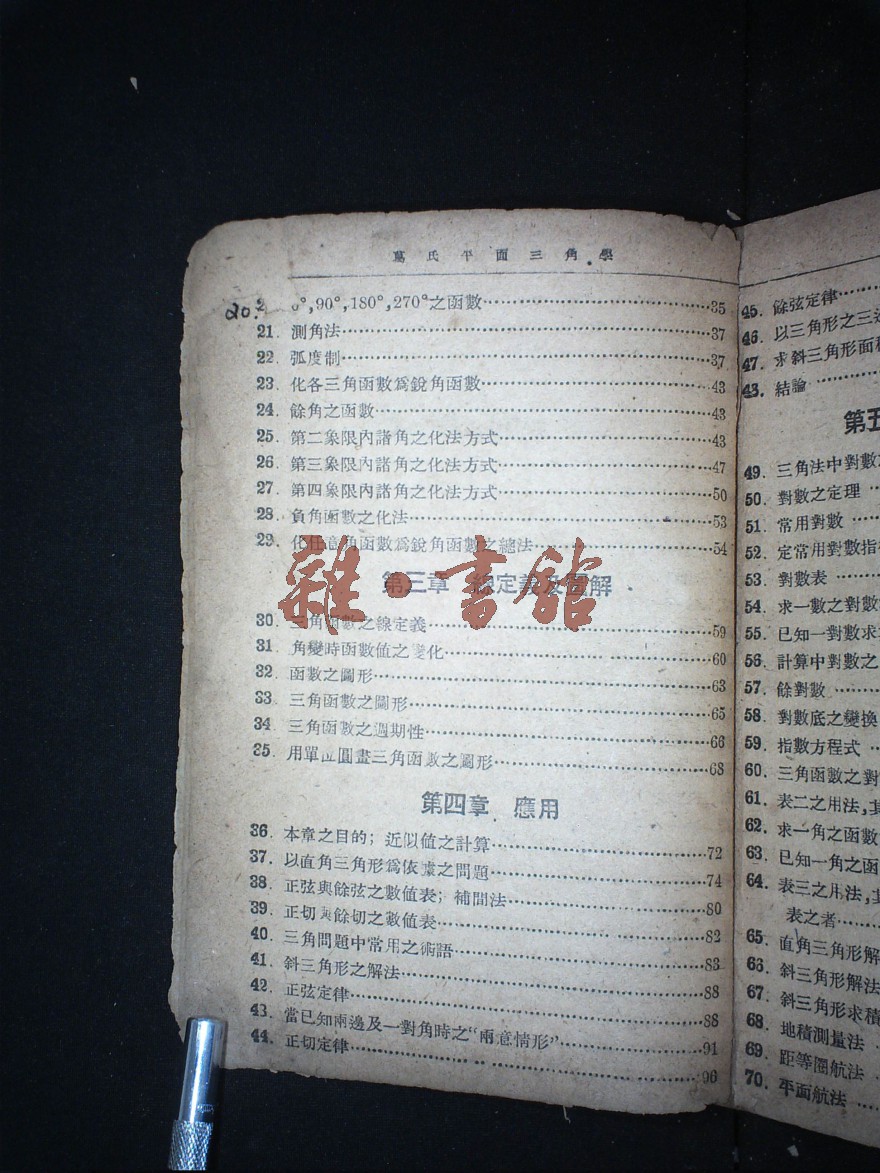 葛氏平面三角學
20. 0°,90°,180°,270°之函數 35
21. 測角法 37
22. 弧度制 37
23. 化各三角函數爲銳角函數 43
24. 餘角之函數 43
25. 第二象限內諸角之化法方式 43
26. 第三象限內諸角之化法方式 47
27. 第四象限內諸角之化法方式 50
28. 負角函數之化法 53
29. 化任意角函數爲銳角函數之總法 54
雜·書舘
第三章 線定義及圖解
30. 三角函數之線定義 59
31. 角變時函數值之變化 60
32. 函數之圖形 63
33. 三角函數之圖形 65
34. 三角函數之週期性 66
35. 用單位圓畫三角函數之圖形 68
第四章 應用
36. 本章之目的；近似值之計算 72
37. 以直角三角形爲依據之問題 74
38. 正弦與餘弦之數值表；補間法 80
39. 正切與餘切之數值表 82
40. 三角問題中常用之術語 83
41. 斜三角形之解法 88
42. 正弦定律 88
43. 當已知兩邊及一對角時之“兩意情形” 91
44. 正切定律 96
45. 餘弦定律
46. 以三角形之三邊
47. 求斜三角形面積
48. 結論
第五
49. 三角法中對數
50. 對數之定理
51. 常用對數
52. 定常用對數指
53. 對數表
54. 求一數之對數
55. 已知一對數求
56. 計算中對數之
57. 餘對數
58. 對數底之變換
59. 指數方程式
60. 三角函數之對
61. 表二之用法,其
62. 求一角之函數
63. 已知一角之函
64. 表三之用法,其
表之者
65. 直角三角形解
66. 斜三角形解法
67. 斜三角形求積
68. 地積測量法
69. 距等圈航法
70. 平面航法